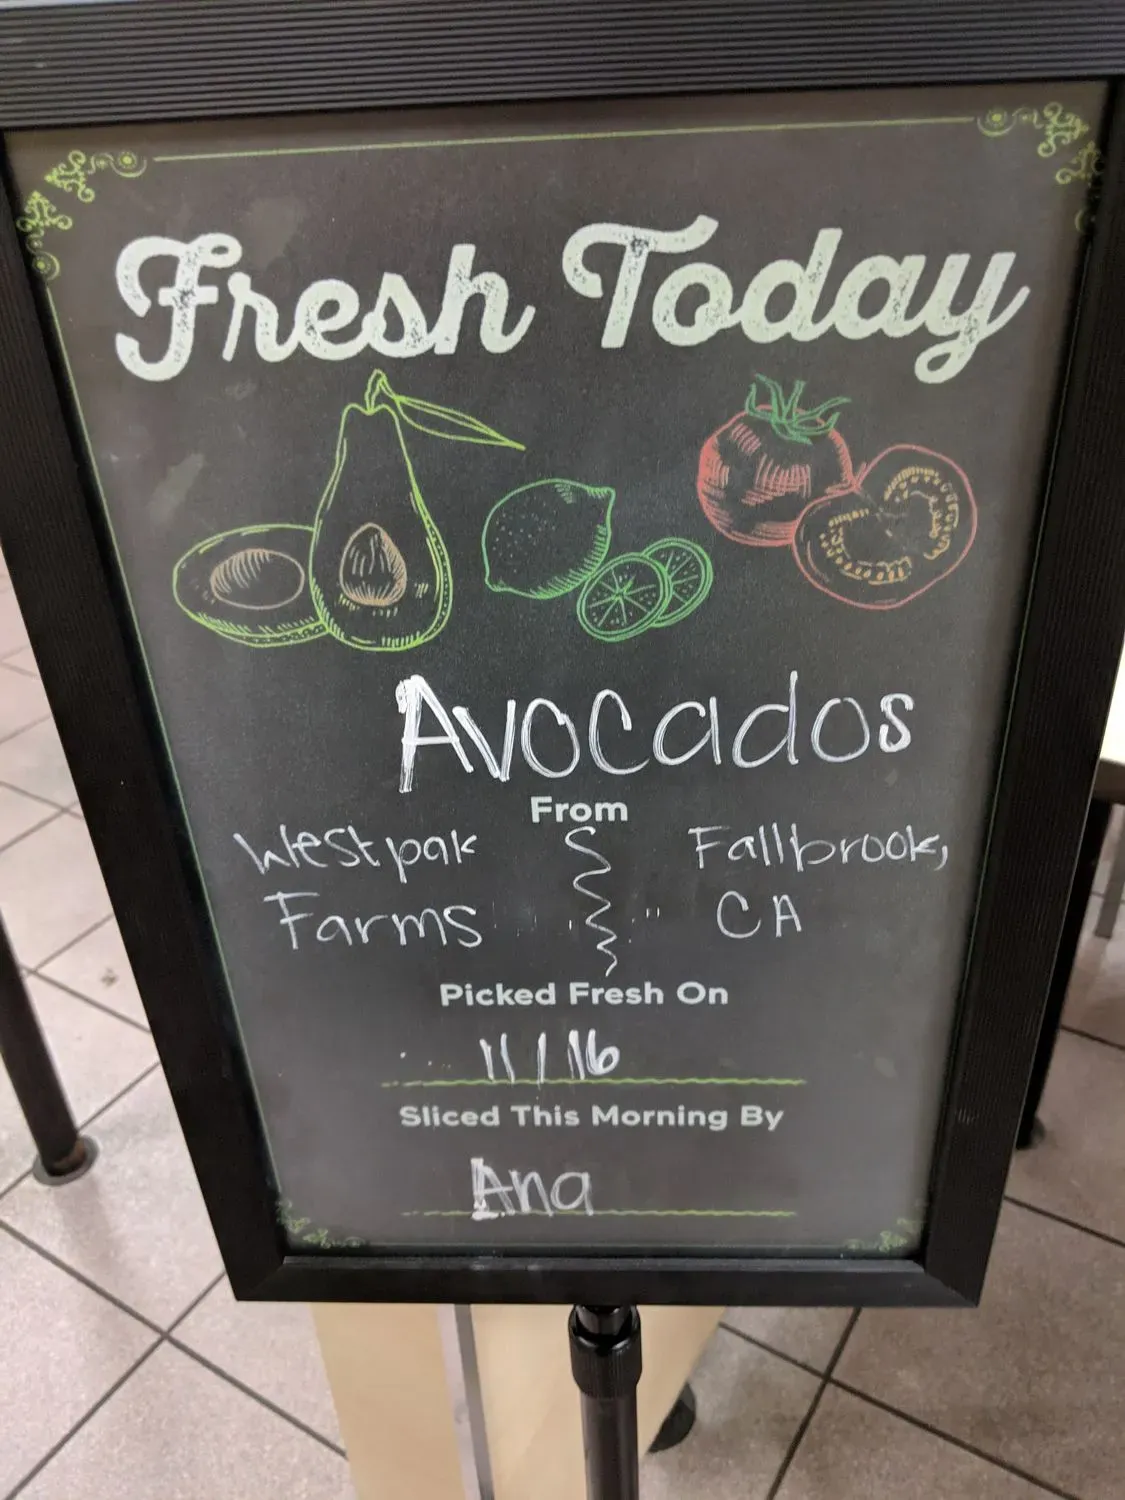 Fresh Today
Avocados
From
Westpak Fallbrook,
Farms CA
Picked Fresh On
11/16
Sliced This Morning By
Ana